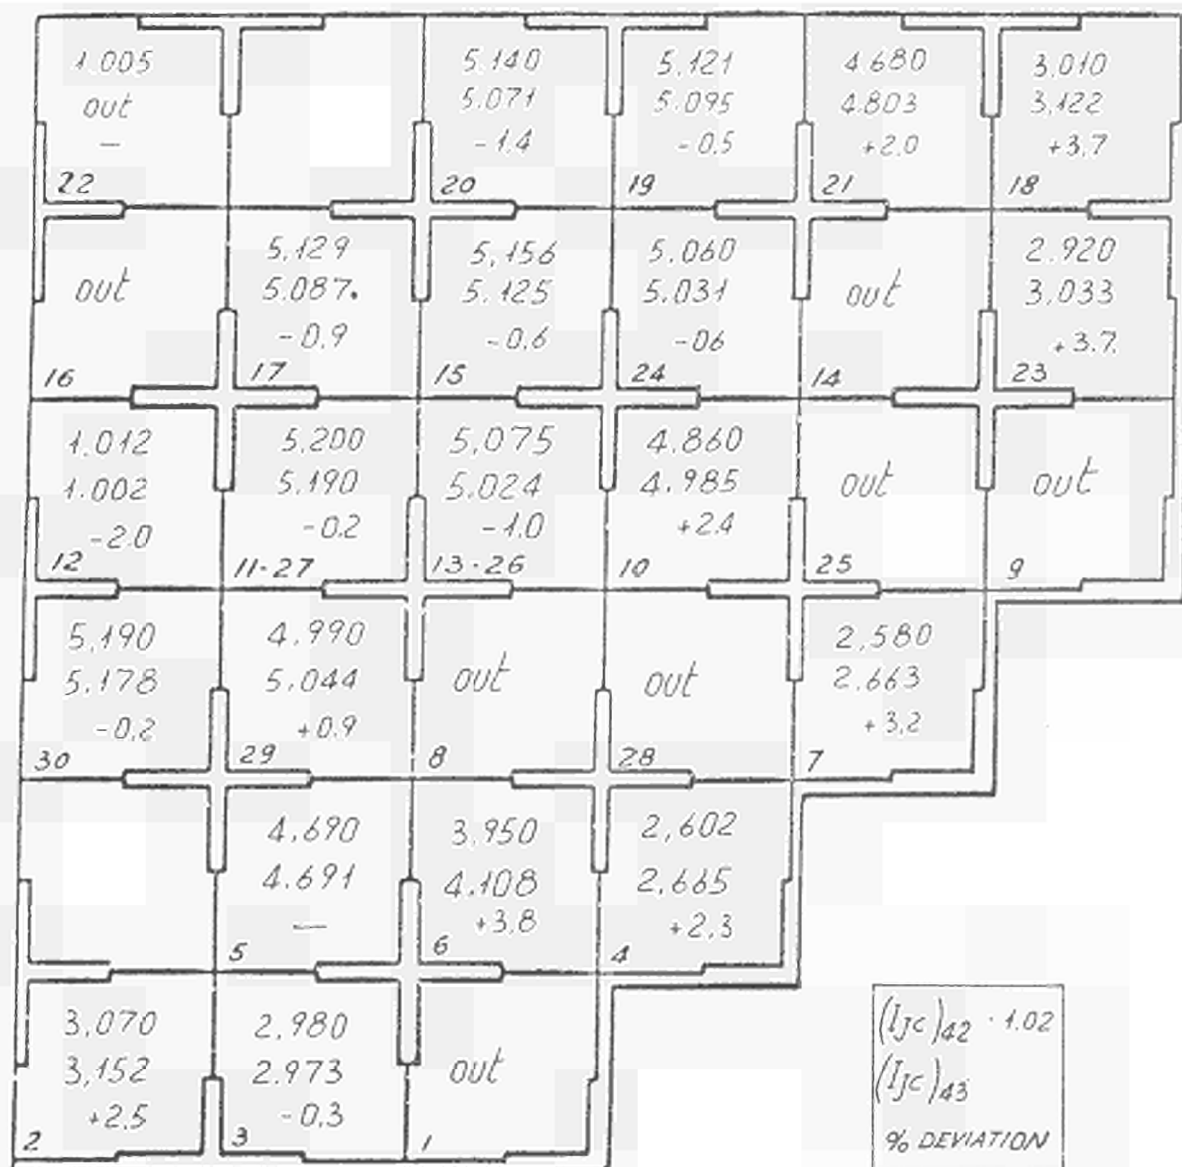 1.005
out
—
22
5.140
5.071
-1.4
20
5.121
5.095
-0.5
19
4.680
4.803
+2.0
21
3.010
3.122
+3.7
18
out
16
5.129
5.087.
-0.9
17
5.156
5.125
-0.6
15
5.060
5.031
-06
24
out
14
2.920
3.033
+3.7.
23
1.012
1.002
-2.0
12
5.200
5.190
-0.2
11-27
5.075
5.024
-1.0
13-26
4.860
4.985
+2.4
10
out
25
out
9
5.190
5.178
-0.2
30
4.990
5.044
+0.9
29
out
8
out
28
2,580
2.663
+3,2
7
4.690
4.691
—
5
3.950
4.108
+3.8
6
2,602
2,665
+2.3
4
3,070
3,152
+2.5
2
2.980
2.973
-0.3
3
out
1
(IJC)42 · 1.02
(IJC)43
% DEVIATION